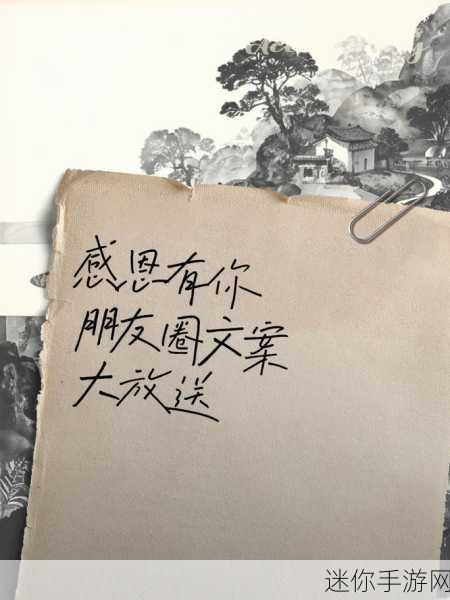 感恩有你
朋友圈文案
大放送
迷你手游网